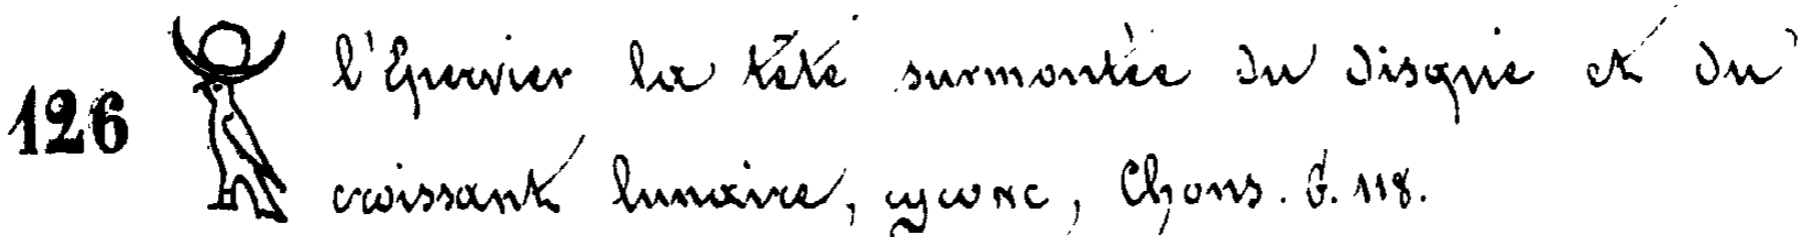 126 l'Epervier la tête surmontée du disque et du
croissant lunaire, ϣⲱⲛⲥ, Chons. G. 118.